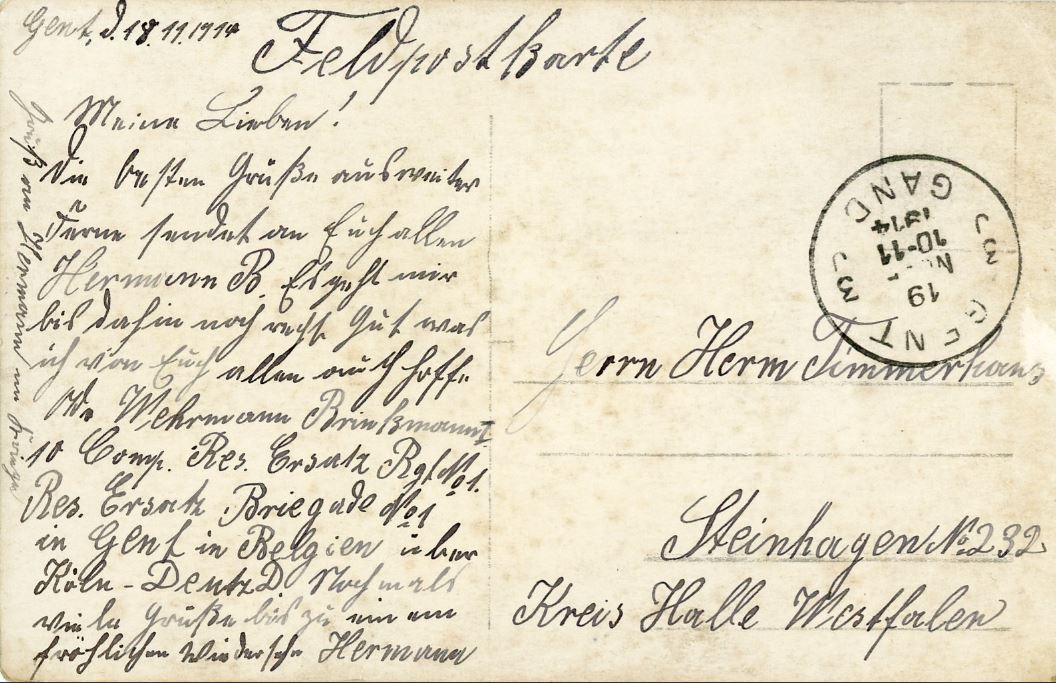 Gent, d. 18.11.1914
Feldpostkarte
Meine Lieben!
Die besten Grüße aus weiter
Ferne sendet an Euch allen
Hermann B. Es geht mir
bis dahin noch recht Gut was
ich von Euch allen auch hoffe
Wehrmann Brinkmann I
10 Comp. Res. Ersatz Rgt No 1.
Res. Ersatz Briegade No 1
in Gent in Belgien über
Köln-Deutz D. Nochmals
viele Grüße bis zu ein em
fröhlichen Wiedersehn Hermann
Gruß an Hermann
GENT
19
NO
10-11
1914
GAND
3J
3J
Herrn Herm Timmerhans
Steinhagen No. 232
Kreis Halle Westfalen